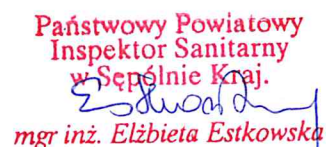 Państwowy Powiatowy
Inspektor Sanitarny
w Sępólnie Kraj.
mgr inż. Elżbieta Estkowska